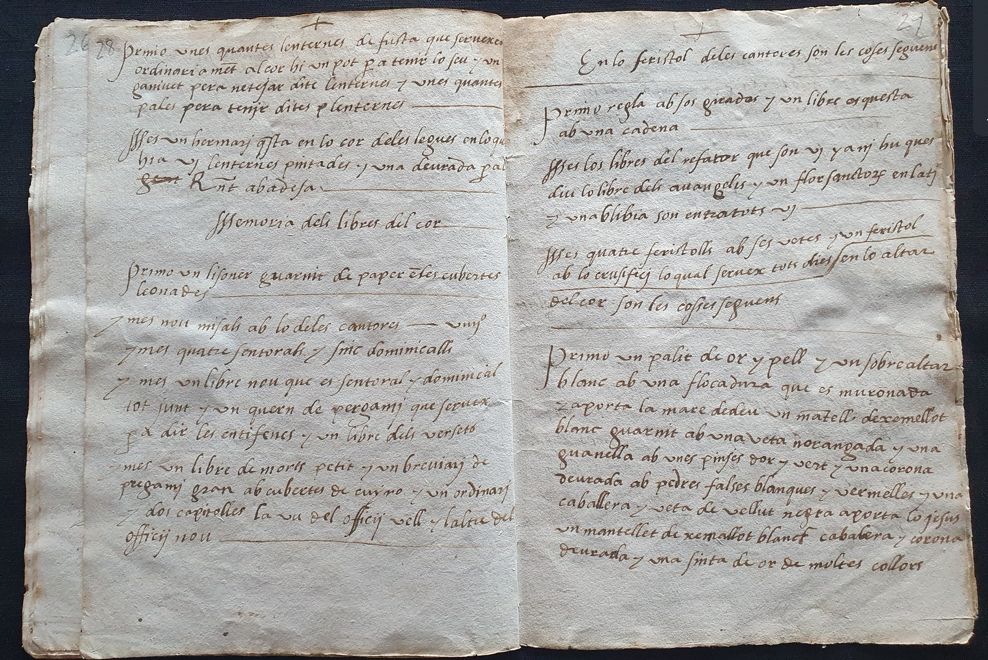 26 28
Primo unes quantes lenternes de fusta que servexen
ordinariament al cor hi un pot pa tenir lo seu y un
ganivet pera netejar dites lenternes y unes quantes
pales pera tenir dites p lenternes
Mes un hermari questa en lo cor deles legues en lo q
hia vj lenternes pintades y una deurada pal
Rnt abadesa
Memoria dels libres del cor
Primo un lisoner guarnit de paper e les cubertes
leonades
y mes nou misals ab lo deles cantores
y mes quatre sentorals y sinc dominicalls
y mes un libre nou que es sentoral y dominical
tot junt y un quern de pergami que serveix
pa dir les entifenes y un libre dels versets
y mes un libre de morts petit y un breviari de
pregami gran ab cubertes de cuyro y un ordinari
y dos capnolies la vu del officij vell y laltre del
officij nou
27
En lo feristol deles cantores son les coses seguens
Primo regla ab sos girados y un libre osquesta
ab una cadena
Mes los libres del refator que son vj y ani hu ques
diu lo libre dels avangelis y un flor sanctorz en lati
y una blibia son entre a tots vj
Mes quatre feristolls ab ses vetes y un feristol
ab lo crusifici lo qual servex tots dies en lo altar
del cor son les cosses seguens
Primo un palit de or y pell y un sobre altar
blanc ab una flocadura que es muronada
y aporta la mare de deu un matell de xemellot
blanc guarnit ab una veta norangada y una
guanella ab unes pinses dor y vert y una corona
deurada ab pedres falses blanques y vermelles y una
caballera y veta de vellut negra aporta lo jesus
un mantellet de xemallot blanch cabalera y corona
deurada y una sinta de or de moltes collors